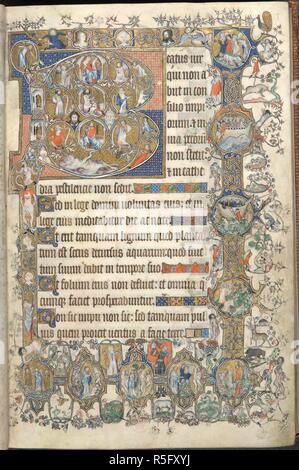 B eatus uir
qui non a
biit in con
silio impi
orum et in
uia peccato
non stetit
et in cathe
dra pestilencie non sedit.
Sed in lege domini uoluntas eius; et in
lege eius meditabitur die ac nocte.
Et erit tamquam lignum quod planta
tum est secus decursus aquarum quod
tum suum dabit in tempore suo
Et folium eius non defluet: et omnia
cumque faciet prosperabuntur.
Non sic impii non sic: sed tamquam pul
uis quem proicit uentus a facie terre.